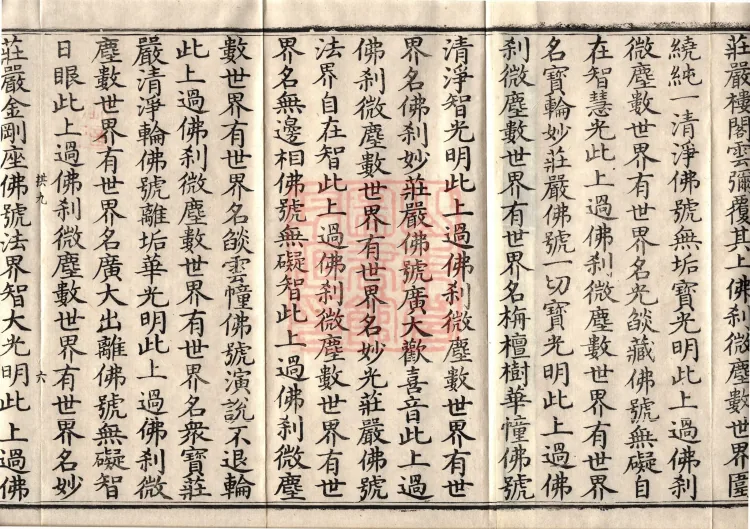 莊嚴樓閣雲彌覆其上佛刹微塵數世界圍
繞純一清淨佛號無垢寶光明此上過佛刹
微塵數世界有世界名光燄藏佛號無礙自
在智慧光此上過佛刹微塵數世界有世界
名寶輪妙莊嚴佛號一切寶光明此上過佛
刹微塵數世界有世界名栴檀樹華幢佛號
清淨智光明此上過佛刹微塵數世界有世
界名佛刹妙莊嚴佛號廣大歡喜音此上過
佛刹微塵數世界有世界名妙光莊嚴佛號
法界自在智此上過佛刹微塵數世界有世
界名無邊相佛號無礙智此上過佛刹微塵
數世界有世界名燄雲幢佛號演說不退輪
此上過佛刹微塵數世界有世界名衆寶莊
嚴清淨輪佛號離垢華光明此上過佛刹微
塵數世界有世界名廣大出離佛號無礙智
日眼此上過佛刹微塵數世界有世界名妙
拱九 六
莊嚴金剛座佛號法界智大光明此上過佛